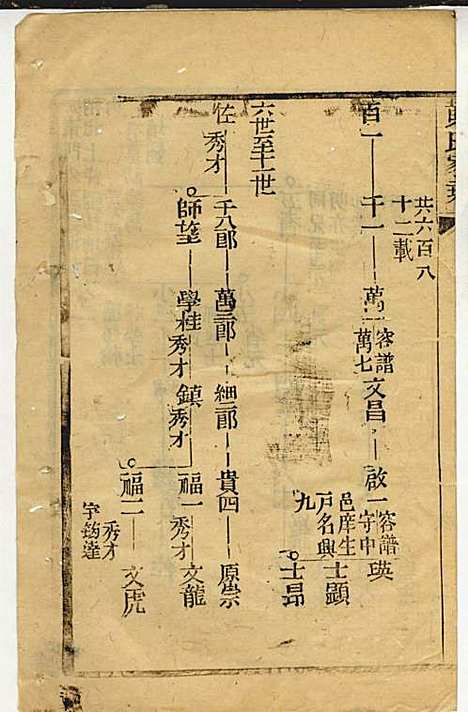 共六百八
十二載
百一 千一 萬一 容譜萬七 文昌 啟一 容譜守中 瑛
邑庠生
戶名興
九
士顯
士昂
六世至十一世
佐秀才 千八郎 萬三郎 細二郎 貴四 原崇
師望 學桂秀才 鎮秀才 福一秀才 文龍
福二 文虎
秀才
字鈞達